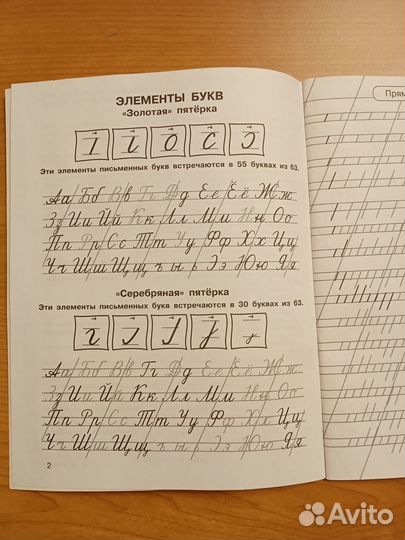 ЭЛЕМЕНТЫ БУКВ
«Золотая» пятёрка
Эти элементы письменных букв встречаются в 55 буквах из 63.
Аа Бб Вв Гг Дд Ее Ёё Жж
Зз Ии Йй Кк Лл Мм Нн Оо
Пп Рр Сс Тт Уу Фф Хх Цц
Чч Шш Щщ ъ ы ь Ээ Юю Яя
«Серебряная» пятёрка
Эти элементы письменных букв встречаются в 30 буквах из 63.
Аа Бб Вв Гг Дд Ее Ёё Жж
Зз Ии Йй Кк Лл Мм Нн Оо
Пп Рр Сс Тт Уу Фф Хх Цц
Чч Шш Щщ ъ ы ь Ээ Юю Яя
2
Avito